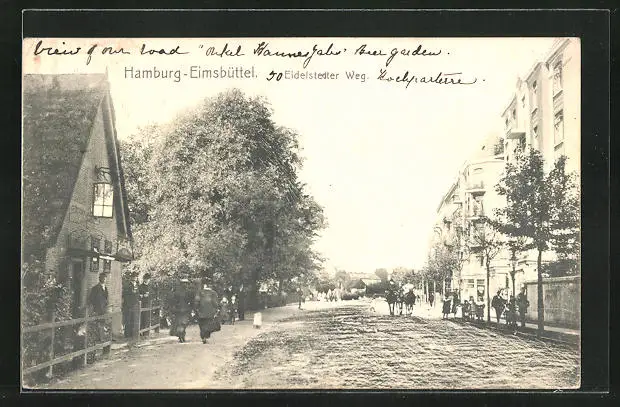 view of our road "onkel Hannes Jahs' Bier garden.
Hamburg-Eimsbüttel. 50 Eidelstedter Weg. Hochparterre.